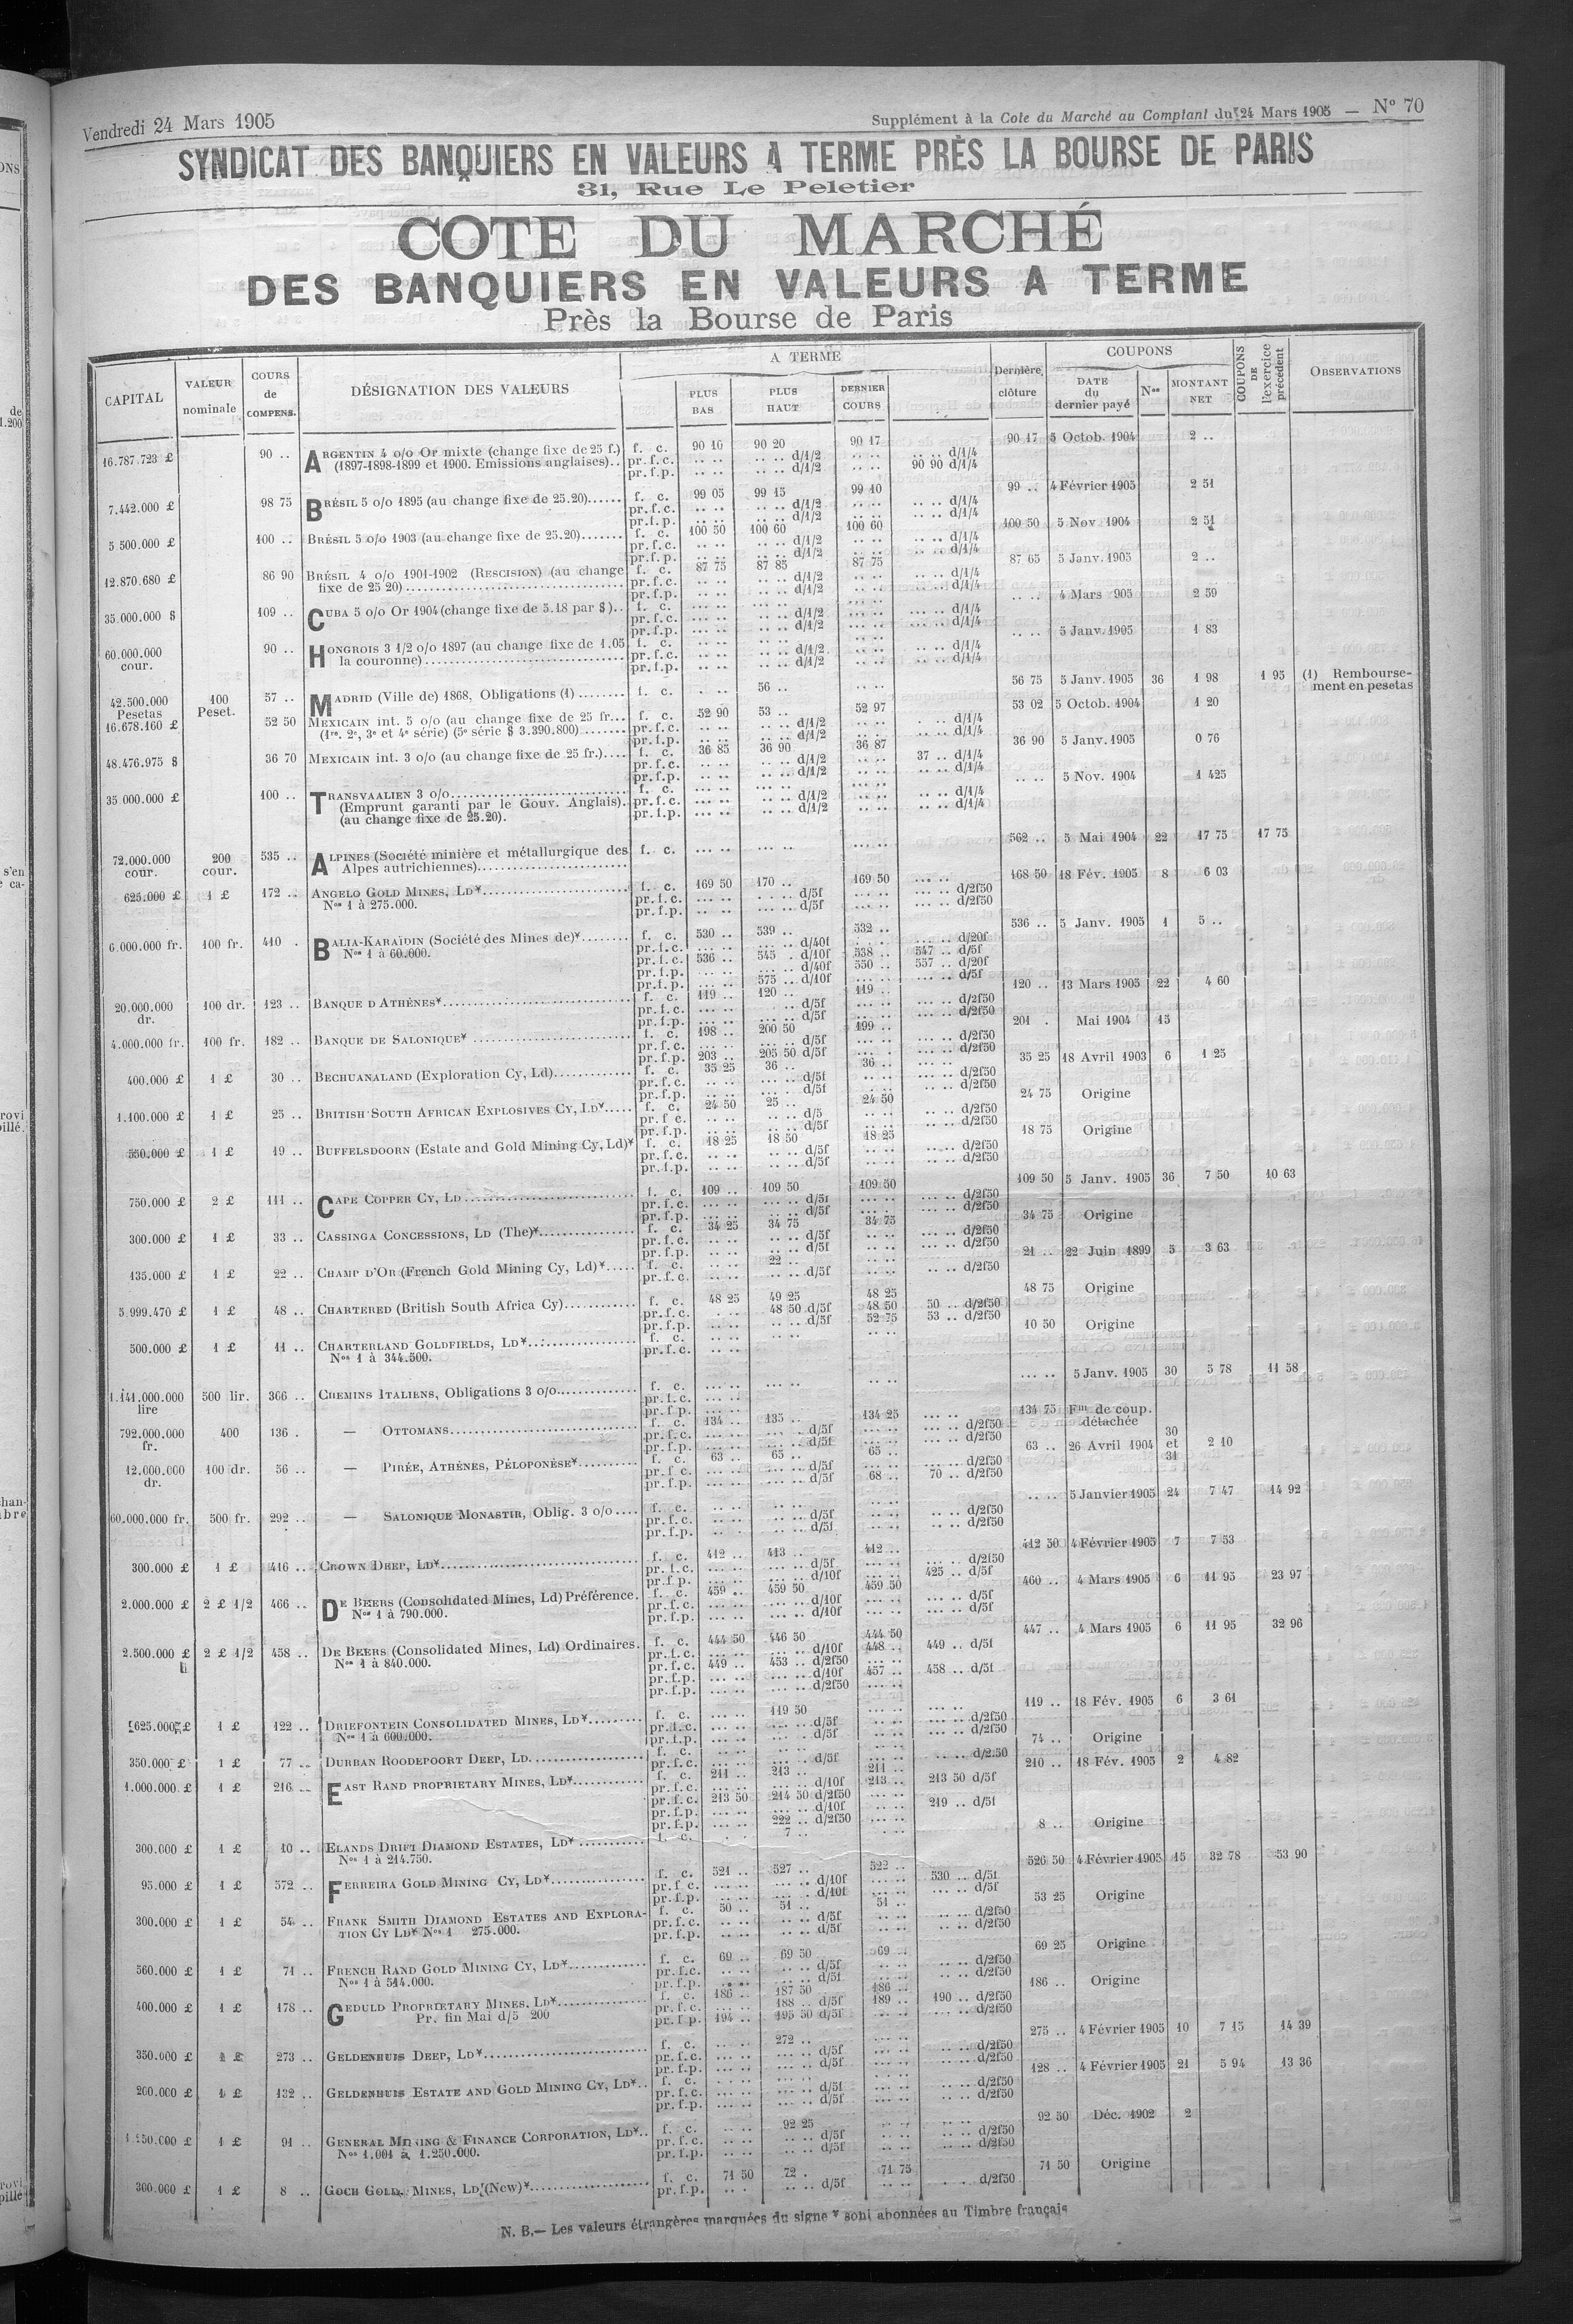 Vendredi 24 Mars 1905
Supplément à la Cote du Marché au Comptant du 24 Mars 1905 — No 70
SYNDICAT DES BANQUIERS EN VALEURS A TERME PRÈS LA BOURSE DE PARIS
31, Rue Le Peletier
COTE DU MARCHÉ
DES BANQUIERS EN VALEURS A TERME
Près la Bourse de Paris
CAPITAL | VALEUR nominale | COURS de COMPENS. | DÉSIGNATION DES VALEURS | A TERME | PLUS BAS | PLUS HAUT | DERNIER COURS | Dernière clôture | COUPONS | DATE du dernier payé | Nos | MONTANT NET | COUPONS DE l'exercice précédent | OBSERVATIONS
16.787.723 £ 90 .. ARGENTIN 4 o/o Or mixte (change fixe de 25 f.) f. c. 90 10 90 20 90 17 90 17 5 Octob. 1904 2 ..
(1897-1898-1899 et 1900. Emissions anglaises).. pr.f.c. .. .. .. .. d/1/2 .. .. .. .. d/1/4
pr.f.p. .. .. .. .. d/1/2 .. .. 90 90 d/1/4
7.442.000 £ 98 75 BRÉSIL 5 o/o 1895 (au change fixe de 25.20)...... f. c. 99 05 99 15 99 10 99 .. 4 Février 1905 2 51
pr.f.c. .. .. .. .. d/1/2 .. .. .. .. d/1/4
pr.f.p. .. .. .. .. d/1/2 .. .. .. .. d/1/4
5.500.000 £ 100 .. BRÉSIL 5 o/o 1903 (au change fixe de 25.20)....... f. c. 100 50 100 60 100 60 100 50 5 Nov. 1904 2 51
pr.f.c. .. .. .. .. d/1/2 .. .. .. .. d/1/4
pr.f.p. .. .. .. .. d/1/2 .. .. .. .. d/1/4
12.870.680 £ 86 90 BRÉSIL 4 o/o 1901-1902 (RESCISION) (au change f. c. 87 75 87 85 87 75 87 65 5 Janv. 1905 2 ..
fixe de 25 20)........ pr.f.c. .. .. .. .. d/1/2 .. .. .. .. d/1/4
pr.f.p. .. .. .. .. d/1/2 .. .. .. .. d/1/4
35.000.000 $ 109 .. CUBA 5 o/o Or 1904 (change fixe de 5.18 par $).. f. c. .. .. 4 Mars 905 2 59
pr.f.c. .. .. .. .. d/1/2 .. .. .. .. d/1/4
pr.f.p. .. .. .. .. d/1/2 .. .. .. .. d/1/4
60.000.000 cour. 90 .. HONGROIS 3 1/2 o/o 1897 (au change fixe de 1.05 f. c. .. .. 5 Janv. 1905 1 83
la couronne)........ pr.f.c. .. .. .. .. d/1/2 .. .. .. .. d/1/4
pr.f.p. .. .. .. .. d/1/2 .. .. .. .. d/1/4
42.500.000 Pesetas 100 Peset. 57 .. MADRID (Ville de) 1868, Obligations (1) ........ f. c. .. .. 56 .. .. .. 56 75 5 Janv. 1905 36 1 98 1 95 (1) Remboursement en pesetas
16.678.160 £ 52 50 MEXICAIN int. 5 o/o (au change fixe de 25 fr... f. c. 52 90 53 .. 52 97 53 02 5 Octob. 1904 1 20
(1re. 2e, 3e et 4e série) (5e série $ 3.390.800)....... pr.f.c. .. .. .. .. d/1/2 .. .. .. .. d/1/4
pr.f.p. .. .. .. .. d/1/2 .. .. .. .. d/1/4
48.476.975 $ 36 70 MEXICAIN int. 3 o/o (au change fixe de 25 fr.).... f. c. 36 85 36 90 36 87 36 90 5 Janv. 1905 0 76
pr.f.c. .. .. .. .. d/1/2 .. .. 37 .. d/1/4
pr.f.p. .. .. .. .. d/1/2 .. .. .. .. d/1/4
35.000.000 £ 100 .. TRANSVAALIEN 3 o/o........ f. c. .. .. 5 Nov. 1904 1 425
(Emprunt garanti par le Gouv. Anglais).. pr.f.c. .. .. .. .. d/1/2 .. .. .. .. d/1/4
(au change fixe de 25.20). pr.f.p. .. .. .. .. d/1/2 .. .. .. .. d/1/4
72.000.000 cour. 200 cour. 535 .. ALPINES (Société minière et métallurgique des f. c. .. .. 562 .. 5 Mai 1904 22 17 75 17 75
Alpes autrichiennes)........
625.000 £ 1 £ 172 .. ANGELO GOLD MINES, LD*........ f. c. 169 50 170 .. 169 50 168 50 18 Fév. 1905 8 6 03
Nos 1 à 275.000. pr.f.c. .. .. .. .. d/5f .. .. .. .. d/2f50
pr.f.p. .. .. .. .. d/5f .. .. .. .. d/2f50
6.000.000 fr. 100 fr. 410 . BALIA-KARAÏDIN (Société des Mines de)*........ f. c. 530 .. 539 .. 532 .. 536 .. 5 Janv. 1905 1 5 ..
Nos 1 à 60.000. pr.f.c. .. .. .. .. d/40f .. .. .. .. d/20f
pr.f.c. 536 .. 545 . d/10f 538 .. 547 .. d/5f
pr.f.p. .. .. .. .. d/40f 550 .. 557 .. d/20f
pr.f.p. .. .. 575 .. d/10f .. .. .. .. d/5f
20.000.000 dr. 100 dr. 123 .. BANQUE D'ATHÈNES*........ f. c. 119 .. 120 .. 119 .. 120 .. 13 Mars 1905 22 4 60
pr.f.c. .. .. .. .. d/5f .. .. .. .. d/2f50
pr.f.p. .. .. .. .. d/5f .. .. .. .. d/2f50
4.000.000 fr. 100 fr. 182 .. BANQUE DE SALONIQUE* ........ f. c. 198 .. 200 50 199 .. 201 . Mai 1904 15
pr.f.c. .. .. .. .. d/5f .. .. .. .. d/2f50
pr.f.p. 203 .. 205 50 d/5f .. .. .. .. d/2f50
400.000 £ 1 £ 30 .. BECHUANALAND (Exploration Cy, Ld)........ f. c. 35 25 36 .. 36 .. 35 25 18 Avril 1903 6 1 25
pr.f.c. .. .. .. .. d/5f .. .. .. .. d/2f50
pr.f.p. .. .. .. .. d/5f .. .. .. .. d/2f50
1.100.000 £ 1 £ 25 .. BRITISH SOUTH AFRICAN EXPLOSIVES CY, LD*..... f. c. 24 50 25 .. 24 50 24 75 Origine
pr.f.c. .. .. .. .. d/5 .. .. .. .. d/2f50
pr.f.p. .. .. .. .. d/5f .. .. .. .. d/2f50
550.000 £ 1 £ 19 .. BUFFELSDOORN (Estate and Gold Mining Cy, Ld)* f. c. 18 25 18 50 18 25 18 75 Origine
pr.f.c. .. .. .. .. d/5f .. .. .. .. d/2f50
pr.f.p. .. .. .. .. d/5f .. .. .. .. d/2f50
750.000 £ 2 £ 111 .. CAPE COPPER CY, LD ........ f. c. 109 .. 109 50 109 50 109 50 5 Janv. 1905 36 7 50 10 63
pr.f.c. .. .. .. .. d/5f .. .. .. .. d/2f50
pr.f.p. .. .. .. .. d/5f .. .. .. .. d/2f50
300.000 £ 1 £ 33 .. CASSINGA CONCESSIONS, LD (The)*........ f. c. 34 25 34 75 34 75 34 75 Origine
pr.f.c. .. .. .. .. d/5f .. .. .. .. d/2f50
pr.f.p. .. .. .. .. d/5f .. .. .. .. d/2f50
135.000 £ 1 £ 22 .. CHAMP D'OR (French Gold Mining Cy, Ld)*..... f. c. .. .. 22 .. .. .. 21 .. 22 Juin 1899 5 3 63
pr.f.c. .. .. .. .. d/5f .. .. .. .. d/2f50
5.999.470 £ 1 £ 48 .. CHARTERED (British South Africa Cy)........ f. c. 48 25 49 25 48 25 48 75 Origine
pr.f.c. .. .. 48 50 d/5f 48 50 50 .. d/2f50
pr.f.p. .. .. .. .. d/5f 52 75 53 .. d/2f50
500.000 £ 1 £ 11 .. CHARTERLAND GOLDFIELDS, LD*........ f. c. .. .. 10 50 Origine
Nos 1 à 344.500. pr.f.c. .. ..
1.141.000.000 lire 500 lir. 366 .. CHEMINS ITALIENS, Obligations 3 o/o........ f. c. .. .. 5 Janv. 1905 30 5 78 11 58
pr.f.c. .. ..
pr.f.p. .. ..
792.000.000 fr. 400 136 . — OTTOMANS........ f. c. 134 .. 135 .. 134 25 134 75 Fm de coup. détachée
pr.f.c. .. .. .. .. d/5f .. .. .. .. d/2f50
pr.f.p. .. .. .. .. d/5f .. .. .. .. d/2f50
12.000.000 dr. 100 dr. 56 .. — PIRÉE, ATHÈNES, PÉLOPONÈSE*........ f. c. 63 .. 65 .. 65 .. 63 .. 26 Avril 1904 30 et 31 2 10
pr.f.c. .. .. .. .. d/5f .. .. .. .. d/2f50
pr.f.p. .. .. .. .. d/5f 68 .. 70 .. d/2f50
60.000.000 fr. 500 fr. 292 .. — SALONIQUE MONASTIR, Oblig. 3 o/o.... f. c. .. .. 5 Janvier 1905 24 7 47 14 92
pr.f.c. .. .. .. .. d/5f .. .. .. .. d/2f50
pr.f.p. .. .. .. .. d/5f .. .. .. .. d/2f50
300.000 £ 1 £ 416 .. CROWN DEEP, LD*........ f. c. 412 .. 413 .. 412 .. 412 50 4 Février 1905 7 7 53
pr.f.c. .. .. .. .. d/5f .. .. .. .. d/2f50
pr.f.p. .. .. .. .. d/10f .. .. 425 .. d/5f
2.000.000 £ 2 £ 1/2 466 .. DE BEERS (Consolidated Mines, Ld) Préférence. f. c. 459 .. 459 50 459 50 460 .. 4 Mars 1905 6 11 95 23 97
Nos 1 à 790.000. pr.f.c. .. .. .. .. d/10f .. .. .. .. d/5f
pr.f.p. .. .. .. .. d/10f .. .. .. .. d/5f
2.500.000 £ 2 £ 1/2 458 .. DE BEERS (Consolidated Mines, Ld) Ordinaires. f. c. 444 50 446 50 444 50 447 .. 4 Mars 1905 6 11 95 32 96
Nos 1 à 840.000. pr.f.c. .. .. .. .. d/10f 448 .. 449 .. d/5f
pr.f.c. 449 .. 453 .. d/2f50 .. ..
pr.f.p. .. .. .. .. d/10f 457 .. 458 .. d/5f
pr.f.p. .. .. .. .. d/2f50 .. ..
625.000 £ 1 £ 122 .. DRIEFONTEIN CONSOLIDATED MINES, LD*........ f. c. .. .. 119 50 .. .. 119 .. 18 Fév. 1905 6 3 61
Nos 1 à 600.000. pr.f.c. .. .. .. .. d/5f .. .. .. .. d/2f50
pr.f.p. .. .. .. .. d/5f .. .. .. .. d/2f50
350.000 £ 1 £ 77 .. DURBAN ROODEPOORT DEEP, LD........ f. c. .. .. 74 .. Origine
pr.f.c. .. .. .. .. d/5f .. .. .. .. d/2.50
1.000.000 £ 1 £ 216 .. EAST RAND PROPRIETARY MINES, LD*........ f. c. 211 .. 213 .. 211 .. 210 .. 18 Fév. 1905 2 4 82
pr.f.c. .. .. .. .. d/10f 213 .. 213 50 d/5f
pr.f.c. 213 50 214 50 d/2f50 .. ..
pr.f.p. .. .. .. .. d/10f .. .. 219 .. d/5f
pr.f.p. .. .. 222 .. d/2f50 .. ..
300.000 £ 1 £ 10 .. ELANDS DRIFT DIAMOND ESTATES, LD* ........ f. c. .. .. 7 .. .. .. 8 .. Origine
Nos 1 à 214.750.
95.000 £ 1 £ 572 .. FERREIRA GOLD MINING CY, LD*........ f. c. 521 .. 527 .. 522 .. 526 50 4 Février 1905 15 32 78 53 90
pr.f.c. .. .. .. .. d/10f .. .. 530 .. d/5f
pr.f.p. .. .. .. .. d/10f .. .. .. .. d/5f
300.000 £ 1 £ 54 .. FRANK SMITH DIAMOND ESTATES AND EXPLORA- f. c. 50 .. 51 .. 51 .. 53 25 Origine
TION CY LD* Nos 1 275.000. pr.f.c. .. .. .. .. d/5f .. .. .. .. d/2f50
pr.f.p. .. .. .. .. d/5f .. .. .. .. d/2f50
560.000 £ 1 £ 71 .. FRENCH RAND GOLD MINING CY, LD*........ f. c. 69 .. 69 50 69 .. 69 25 Origine
Nos 1 à 514.000. pr.f.c. .. .. .. .. d/5f .. .. .. .. d/2f50
pr.f.p. .. .. .. .. d/5f .. .. .. .. d/2f50
400.000 £ 1 £ 178 .. GEDULD PROPRIETARY MINES, LD*........ f. c. 186 .. 187 50 186 .. 186 .. Origine
Pr. fin Mai d/5 200 pr.f.c. .. .. 188 .. d/5f 189 .. 190 .. d/2f50
pr.f.p. 194 .. 195 50 d/5f .. .. .. .. d/2f50
350.000 £ 1 £ 273 .. GELDENHUIS DEEP, LD*........ f. c. .. .. 272 .. .. .. 275 .. 4 Février 1905 10 7 15 14 39
pr.f.c. .. .. .. .. d/5f .. .. .. .. d/2f50
pr.f.p. .. .. .. .. d/5f .. .. .. .. d/2f50
200.000 £ 1 £ 132 .. GELDENHUIS ESTATE AND GOLD MINING CY, LD*.. f. c. .. .. 128 .. 4 Février 1905 21 5 94 13 36
pr.f.c. .. .. .. .. d/5f .. .. .. .. d/2f50
pr.f.p. .. .. .. .. d/5f .. .. .. .. d/2f50
1.250.000 £ 1 £ 91 .. GENERAL MINING & FINANCE CORPORATION, LD*.. f. c. .. .. 92 25 .. .. 92 50 Déc. 1902 2
Nos 1.001 à 1.250.000. pr.f.c. .. .. .. .. d/5f .. .. .. .. d/2f50
pr.f.p. .. .. .. .. d/5f .. .. .. .. d/2f50
300.000 £ 1 £ 8 .. GOCH GOLD MINES, LD (New)*........ f. c. 71 50 72 . 71 75 71 50 Origine
pr.f.p. .. .. .. .. d/5f .. .. .. .. d/2f50
N. B.— Les valeurs étrangères marquées du signe * sont abonnées au Timbre français